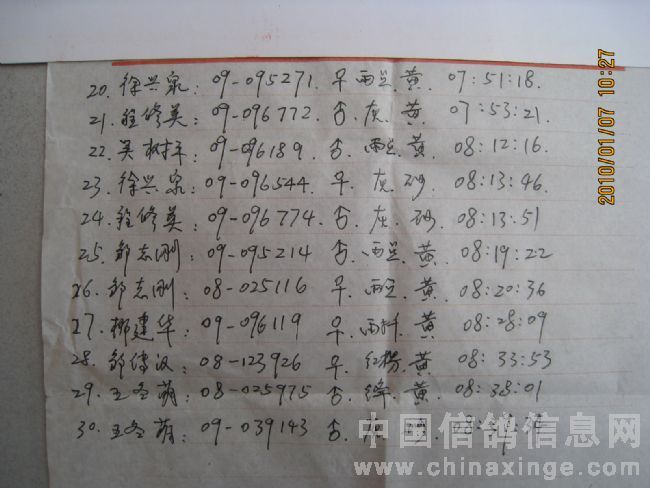 20. 徐兴泉: 09-095271. 早 雨点. 黄. 07:51:18.
21. 程修英: 09-096772. 否. 灰. 黄. 07:53:21.
22. 吴树平: 09-096189. 否. 雨点. 黄. 08:12:16.
23. 徐兴泉: 09-096544. 早. 灰. 砂. 08:13:46.
24. 程修英: 09-096774. 否. 灰. 砂. 08:13:51
25. 邹志刚: 09-095214 否. 雨点. 黄. 08:19:22
26. 邹志刚: 08-025116 早. 雨点. 黄. 08:20:36
27. 柳建华: 09-096119 早. 雨 黄. 08:28:09
28. 邹传汉: 08-123926 早. 红 . 黄 08:33:53
29. 王冬萌: 08-025975 否. 绛. 黄. 08:38:01
30. 王冬萌: 09-039143 否. 08:
2010/01/07 10:27
中国信鸽信息网
www.chinaxinge.com